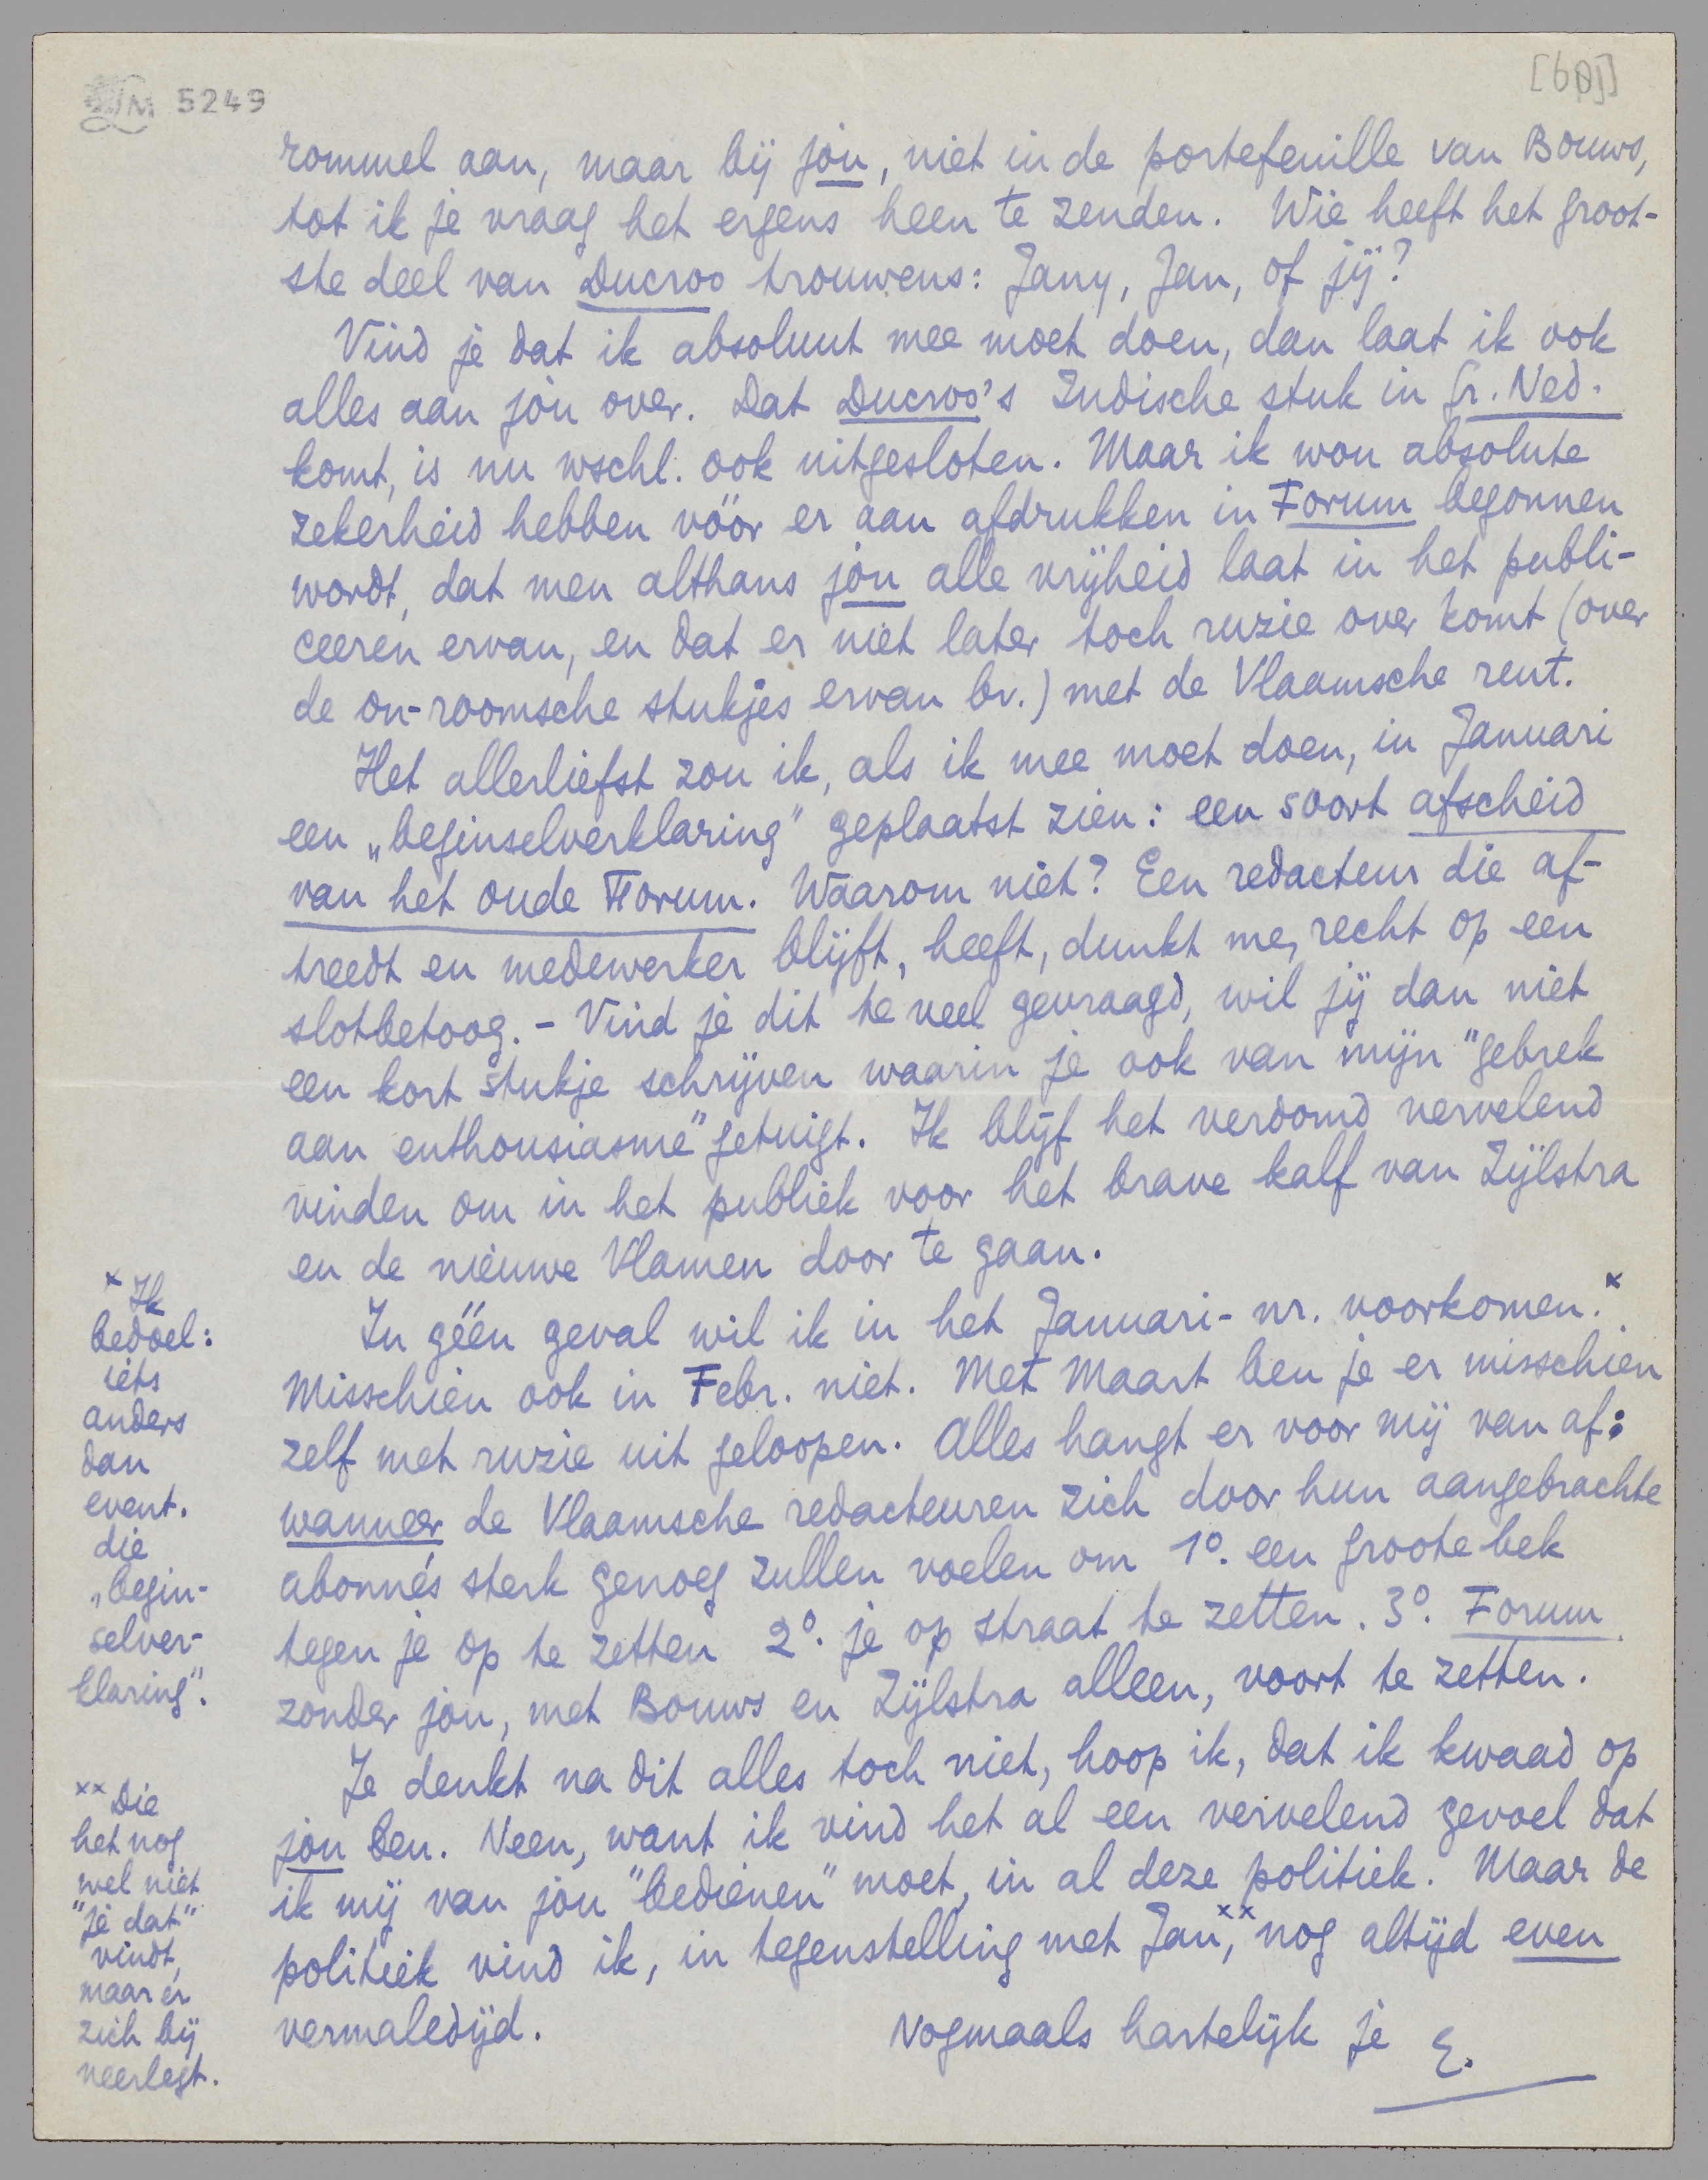 LM 5249
rommel aan, maar bij jóu, niet in de portefeuille van Bouws,
tot ik je vraag het ergens heen te zenden. Wie heeft het groot-
ste deel van Ducroo trouwens: Jany, Jan, of jij?
Vind je dat ik absoluut mee moet doen, dan laat ik ook
alles aan jóu over. Dat Ducroo's Indische stuk in Gr. Ned.
komt, is nu wschl. ook uitgesloten. Maar ik wou absolute
zekerheid hebben vóór er aan afdrukken in Forum begonnen
wordt, dat men althans jóu alle vrijheid laat in het publi-
ceeren ervan, en dat er niet later toch ruzie over komt (over
de on-roomsche stukjes ervan bv.) met de Vlaamsche rent.
Het allerliefst zou ik, als ik mee moet doen, in Januari
een „beginselverklaring" geplaatst zien: een soort afscheid
van het oude Forum. Waarom niet? Een redacteur die af-
treedt en medewerker blijft, heeft, dunkt me, recht op een
slotbetoog. – Vind je dit te veel gevraagd, wil jij dan niet
een kort stukje schrijven waarin je ook van mijn "gebrek
aan enthousiasme" getuigt. Ik blijf het verdomd vervelend
vinden om in het publiek voor het brave kalf van Zijlstra
en de nieuwe Vlamen door te gaan.
In géén geval wil ik in het Januari-nr. voorkomen.x
Misschien ook in Febr. niet. Met Maart ben je er misschien
zelf met ruzie uit geloopen. Alles hangt er voor mij van af:
wanneer de Vlaamsche redacteuren zich door hun aangebrachte
abonnés sterk genoeg zullen voelen om 1°. een groote bek
tegen je op te zetten 2°. je op straat te zetten. 3°. Forum
zonder jou, met Bouws en Zijlstra alleen, voort te zetten.
Je denkt na dit alles toch niet, hoop ik, dat ik kwaad op
jóu ben. Neen, want ik vind het al een vervelend gevoel dat
ik mij van jóu "bedienen" moet, in al deze politiek. Maar de
politiek vind ik, in tegenstelling met Jan,xx nog altijd even
vermaledijd.
Nogmaals hartelijk je E.
x Ik
bedoel:
iets
anders
dan
event.
die
„begin-
selver-
klaring".
xx Die
het nog
wel niet
"je dat"
vindt,
maar er
zich bij
neerlegt.